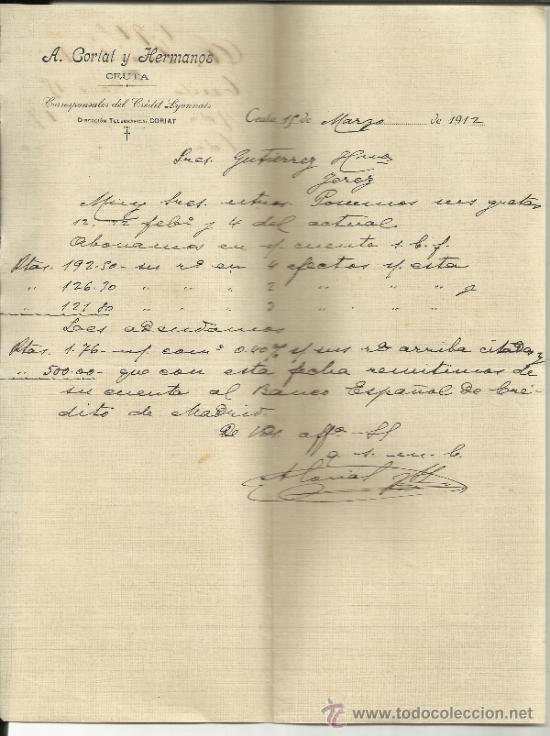 A. Coriat y Hermanos
CEUTA
Corresponsales del Crédit Lyonnais
DIRECCIÓN TELEGRÁFICA: CORIAT
Ceuta 15 de Marzo de 1912
Sres. Gutierrez Hnos
Jerez
Muy Sres. ntros. Ponemos sus gratas
12. febº y 4 del actual.
Abonamos en s/ cuenta s. b. f.
Ptas. 192.50 - su rª en 4 efectos s/ esta
" 126.70 " " " 2 " "
" 121.80 " " " 3 " "
Les adeudamos
Ptas. 1.76 - n/ comº 0.40% s/ sus rª arriba citadas,
" 500.00 - que con esta fecha remitimos de
su cuenta al Banco Español de Cré-
dito de Madrid.
De Vds. affº SS
q. s. m. b.
A Coriat y H
www.todocoleccion.net